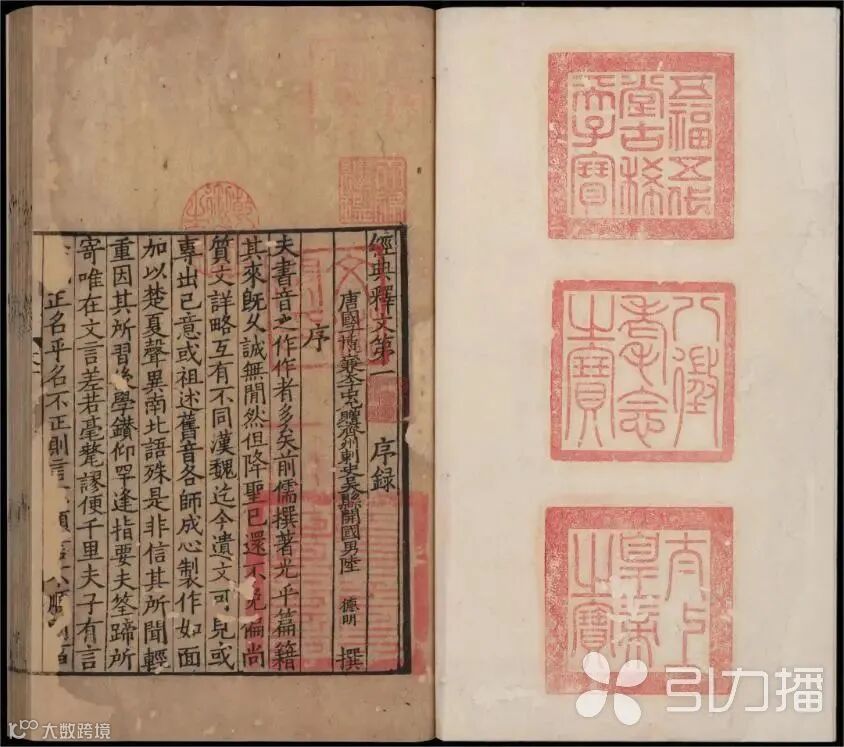 五福五代
堂古稀
天子寶
八徵
耄念
之寶
太上
皇帝
之寶
經典釋文第一 序録
唐國子博士兼太子中允贈齊州刺史吳縣開國男陸 德明 撰
序
夫書音之作作者多矣前儒撰著光乎篇籍
其來旣久誠無閒然但降聖已還不免偏尚
質文詳略互有不同漢魏迄今遺文可見或
專出己意或祖述舊音各師成心製作如面
加以楚夏聲異南北語殊是非信其所聞輕
重因其所習後學鑽仰罕逢指要夫筌蹄所
寄唯在文言差若毫氂謬便千里夫子有言
正名乎名不正則言
引力播
大数跨境